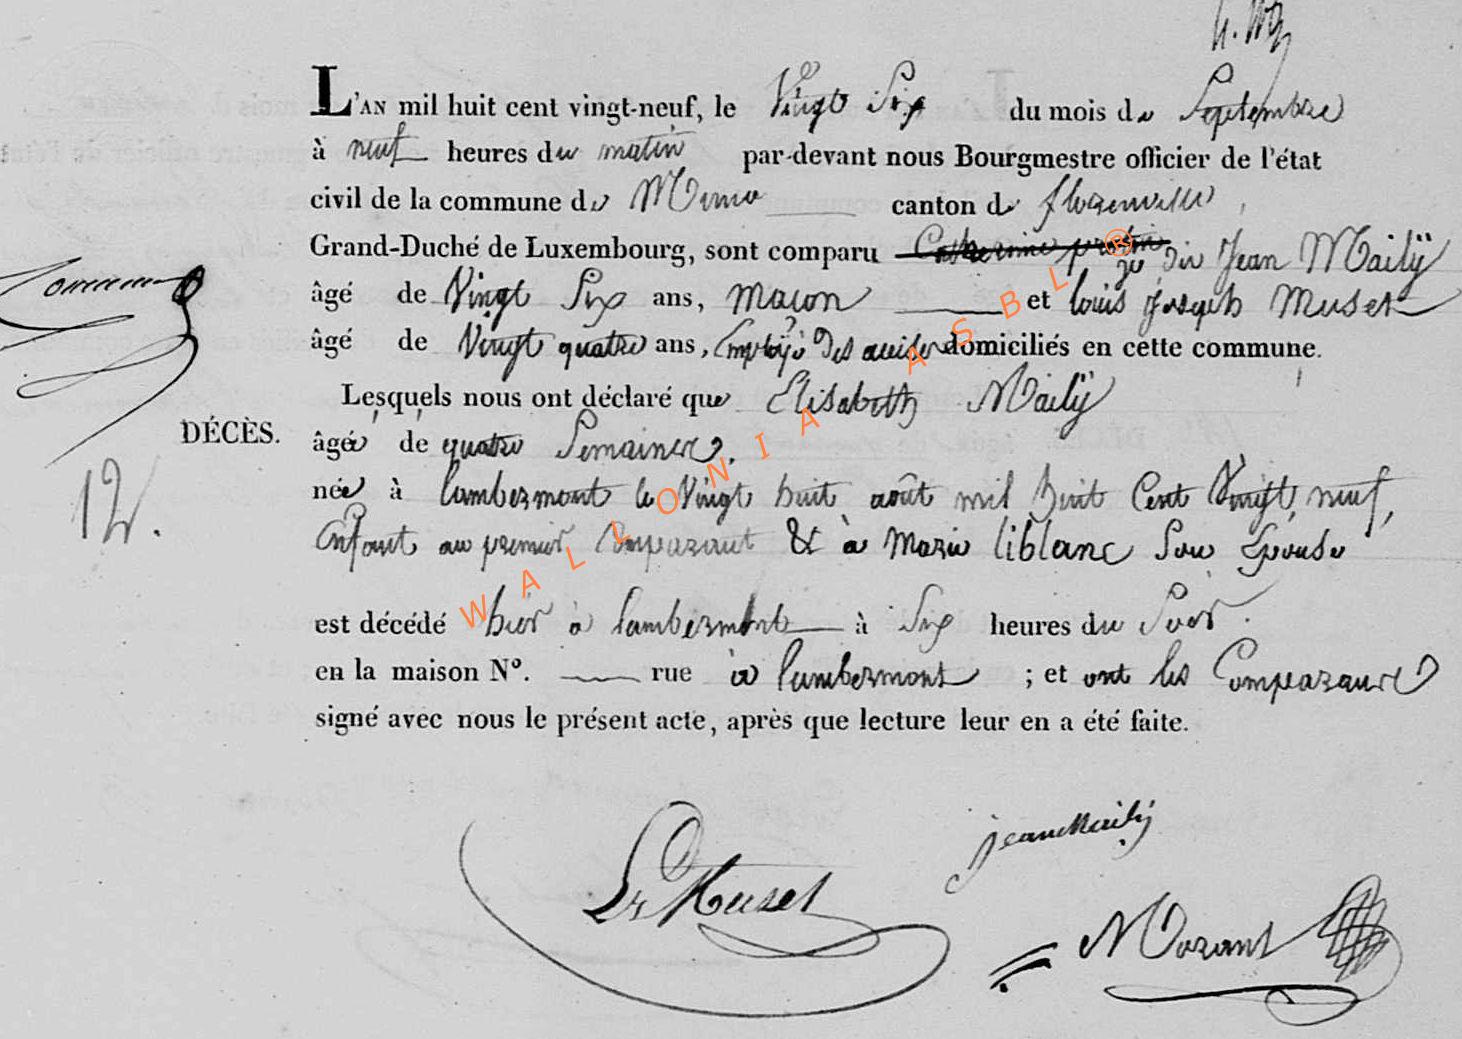 L'AN mil huit cent vingt-neuf, le Vingt Six du mois de Septembre
à neuf heures du matin par-devant nous Bourgmestre officier de l'état
civil de la commune de Muno canton de florenville
Grand-Duché de Luxembourg, sont comparu Catherine je dis Jean Maily
âgé de Vingt Six ans, macon et louis joseph Muset
âgé de Vingt quatre ans, Employé des accises domiciliés en cette commune.
Lesquels nous ont déclaré que Elisabeth Maily
DÉCÈS.
âgée de quatre Semaines,
12.
née à lambermont le Vingt huit août mil huit Cent Vingt neuf,
Enfant au premier Comparant & à Marie liblanc Son Epouse
est décédé hier à lambermont à Six heures du Soir.
en la maison N°. rue à lambermont ; et ont les Comparans
signé avec nous le présent acte, après que lecture leur en a été faite.
jean Maily
Ls Muset
Morant
WALLONIA ASBL ®